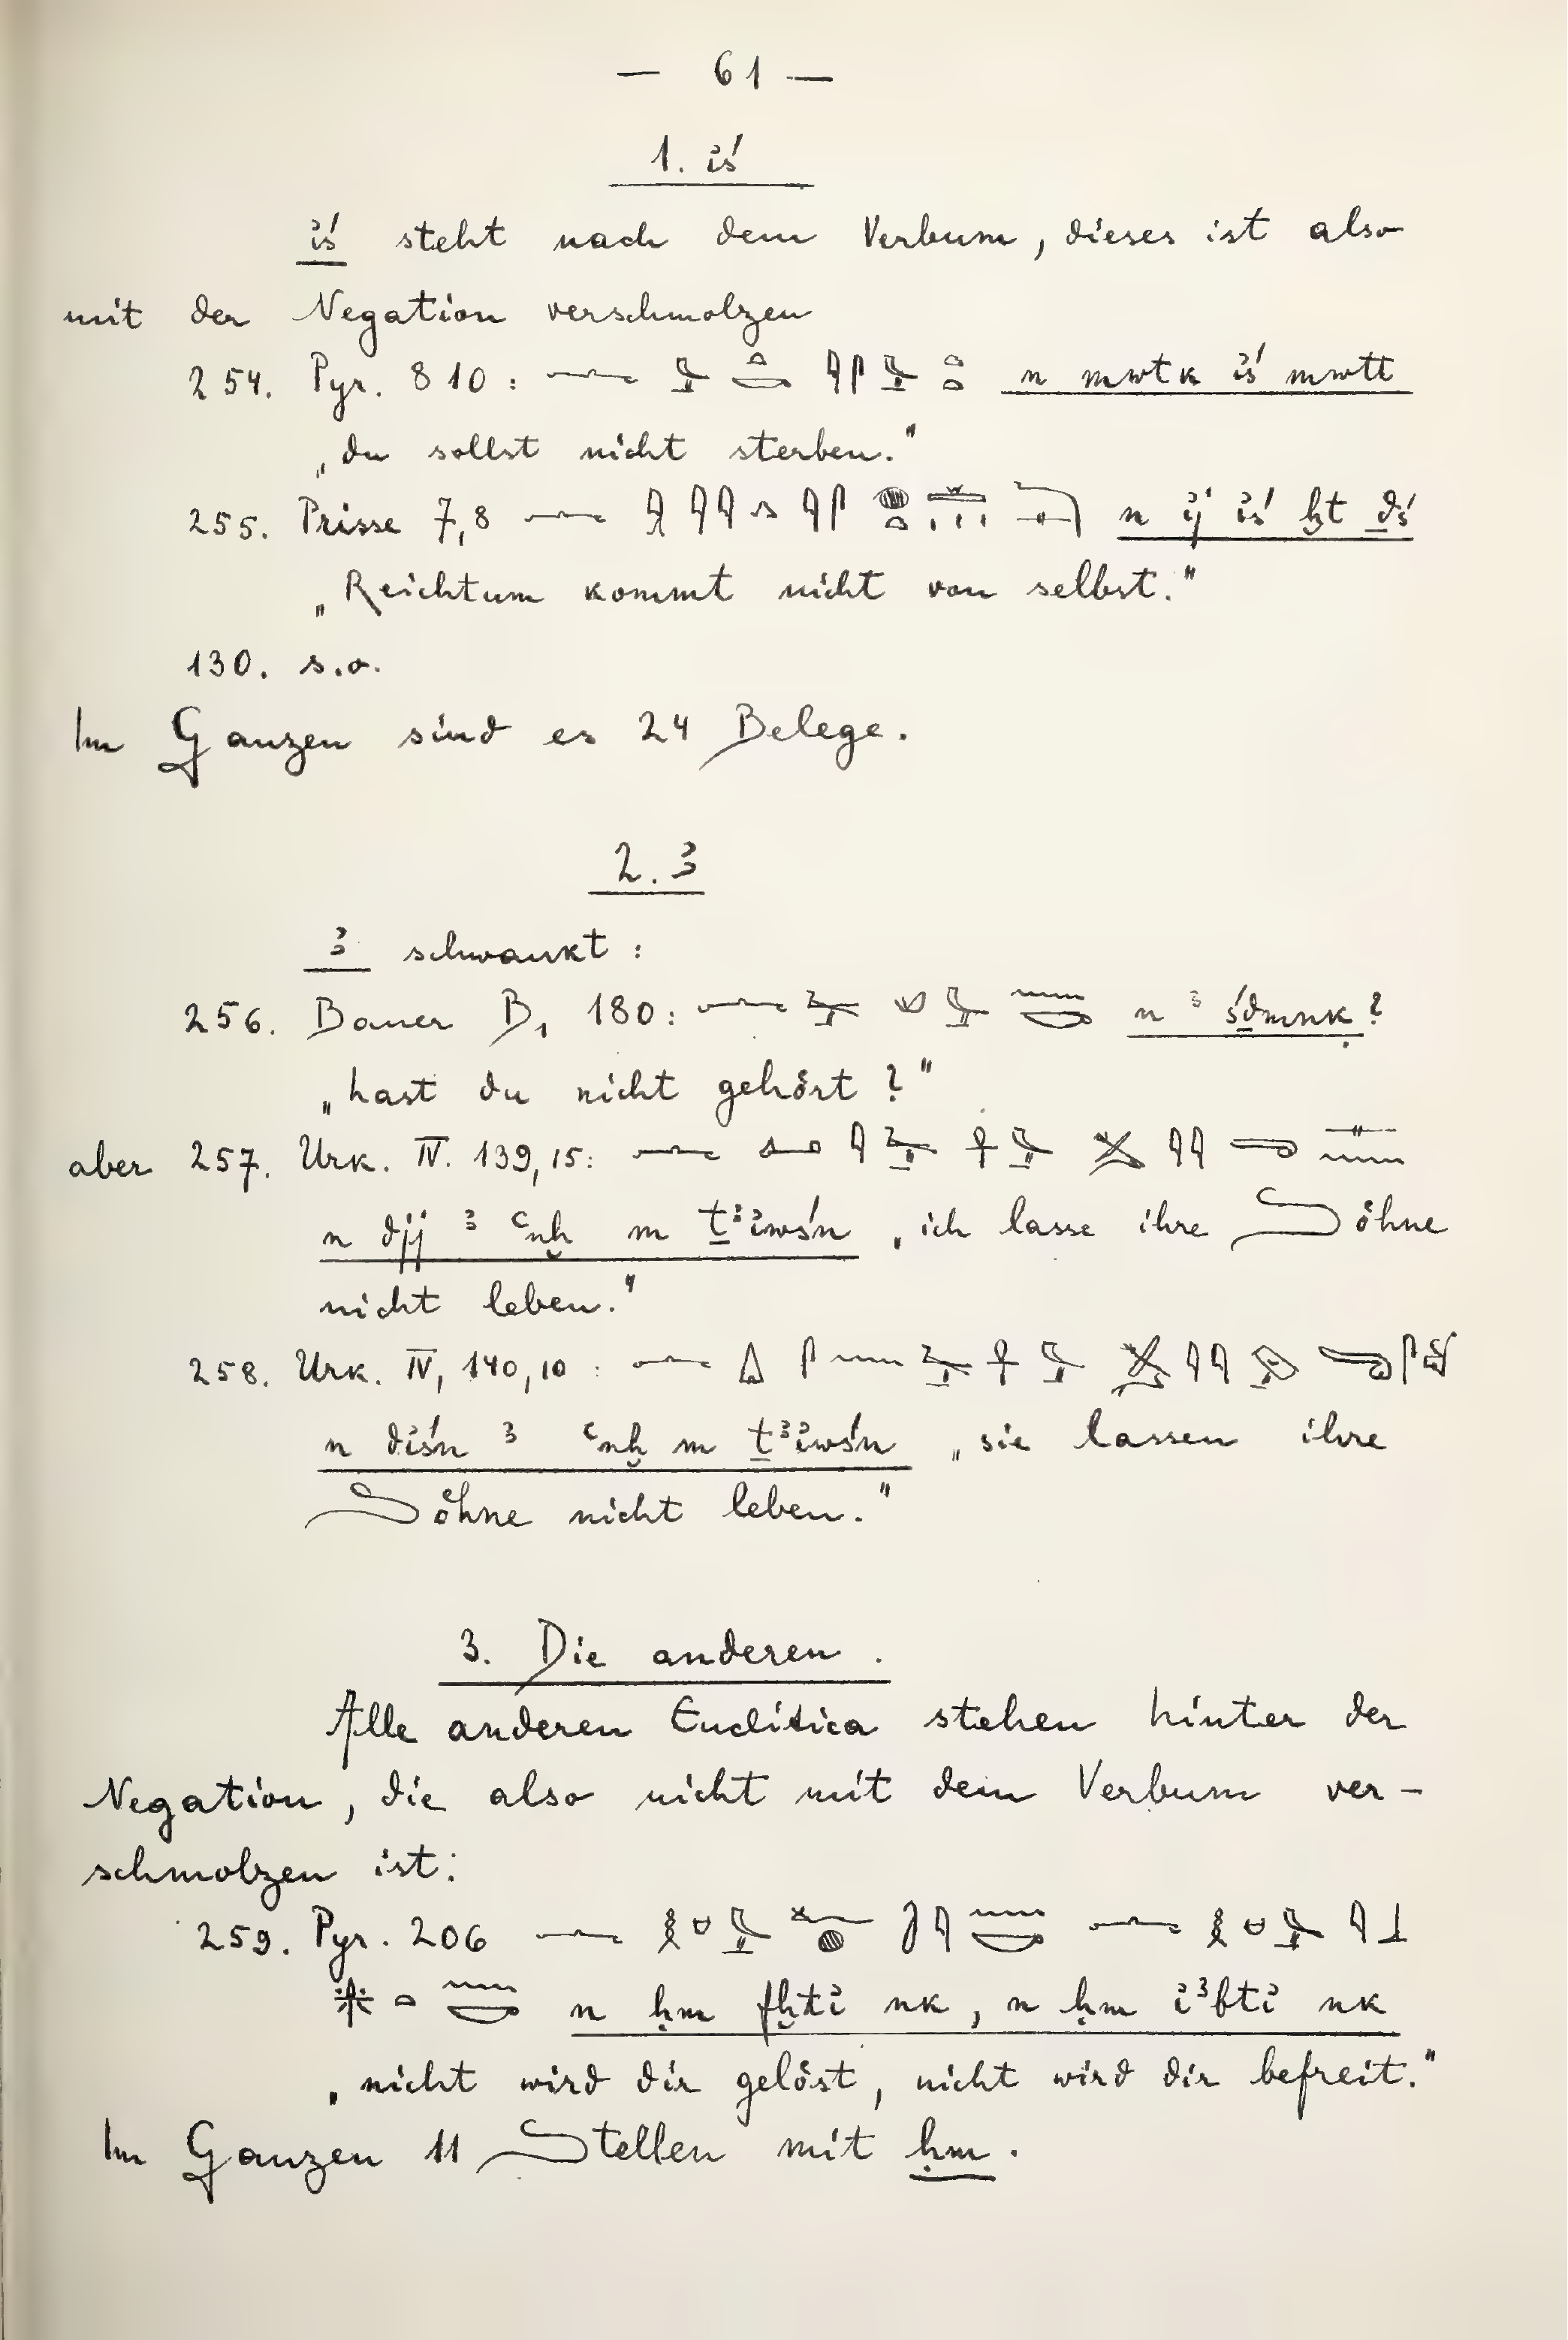 — 61 —
1. ꞽś
ꞽś steht nach dem Verbum, dieses ist also
mit der Negation verschmolzen
254. Pyr. 810: n mwtk ꞽś mwtt
„du sollst nicht sterben."
255. Prisse 7,8 n ꞽj ꞽś ḫt ḏś
„Reichtum kommt nicht von selbst."
130. s.o.
Im Ganzen sind es 24 Belege.
2. ꜣ
ꜣ schwankt:
256. Bauer B, 180: n ꜣ śḏmnk?
„hast du nicht gehört?"
aber 257. Urk. IV. 139,15:
n djj ꜣ ꜥnḫ m ṯꜣꞽwśn „ich lasse ihre Söhne
nicht leben."
258. Urk. IV, 140,10:
n dꞽśn ꜣ ꜥnḫ m ṯꜣꞽwśn „sie lassen ihre
Söhne nicht leben."
3. Die anderen.
Alle anderen Enclitica stehen hinter der
Negation, die also nicht mit dem Verbum ver-
schmolzen ist:
259. Pyr. 206
n ḥm fḫtꞽ nk, n ḥm ꞽꜣbtꞽ nk
„nicht wird dir gelöst, nicht wird dir befreit."
Im Ganzen 11 Stellen mit ḥm.